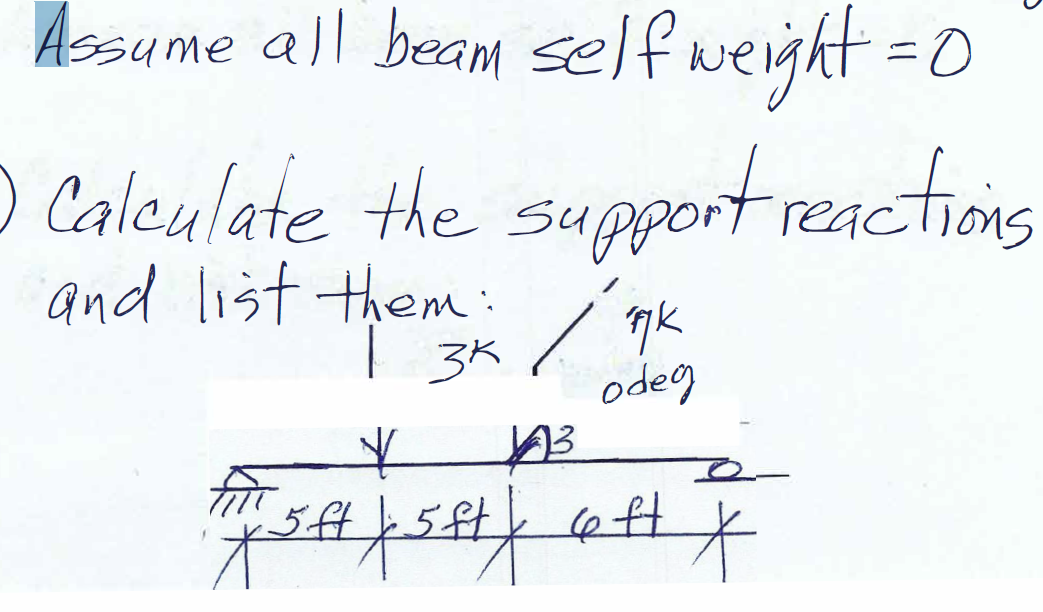 Assume all beam self weight = 0
) Calculate the support reactions
and list them:
3K
0 deg
3
5 ft 5 ft 6 ft